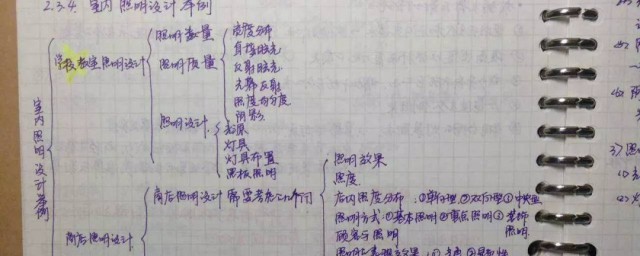 2.3.4. 室内照明设计举例
室内照明设计举例
学校教室照明设计
照明数量
照明质量
亮度分布
直接眩光
反射眩光
光幕反射
照度均匀度
阴影
照明设计
光源
灯具
灯具布置
黑板照明
商店照明设计
商店照明设计需要考虑
照明效果
照度
店内照度分布 ①单向型 ②双向型 ③中央型
照明方式 ①基本照明 ②重点照明 ③装饰照明
顾客与照明
照明的表现效果
3)